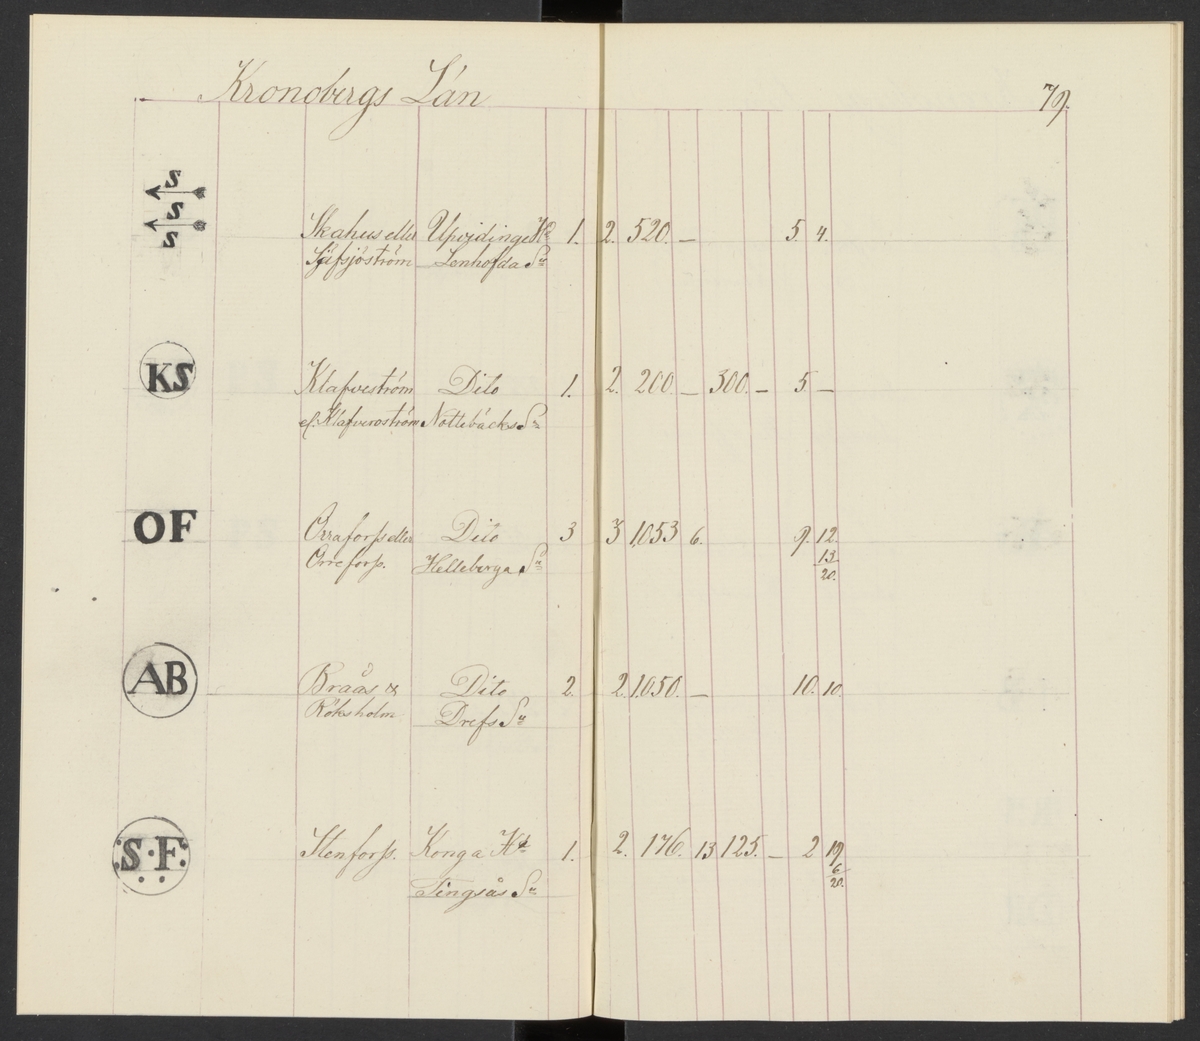 Kronobergs Län
79.
S
S
S
Skahus eller Upvidinge Hd 1. 2. 520. — 5. 4.
Sjöström Lenhofda Sn
KS
Klafreström Dito 1. 2. 200. — 300. — 5 —
el. Klafveroström Nottebäcks Sn
OF
Orraforss eller Dito 3 3 1,053 6. 9. 12
13
Orreforss. Helleberga Sn
20.
AB
Braås & Dito 2. 2. 1,050. — 10. 10.
Röksholm Drefs Sn
S. F.
Stenforss. Konga Hd 1. 2. 176. 13 125. — 2 19
6
20.
Tingsås Sn